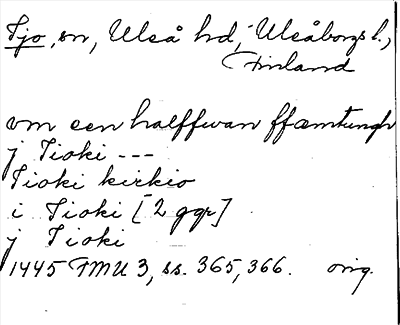 Tjo, sn, Uleå hd, Uleåborgs l.,
Finland
om een halffwan ffæmtungh
j Tioki ---
Tioki kirkio
i Tioki [2 ggr]
j Tioki
1445 FMU 3, ss. 365, 366. orig.